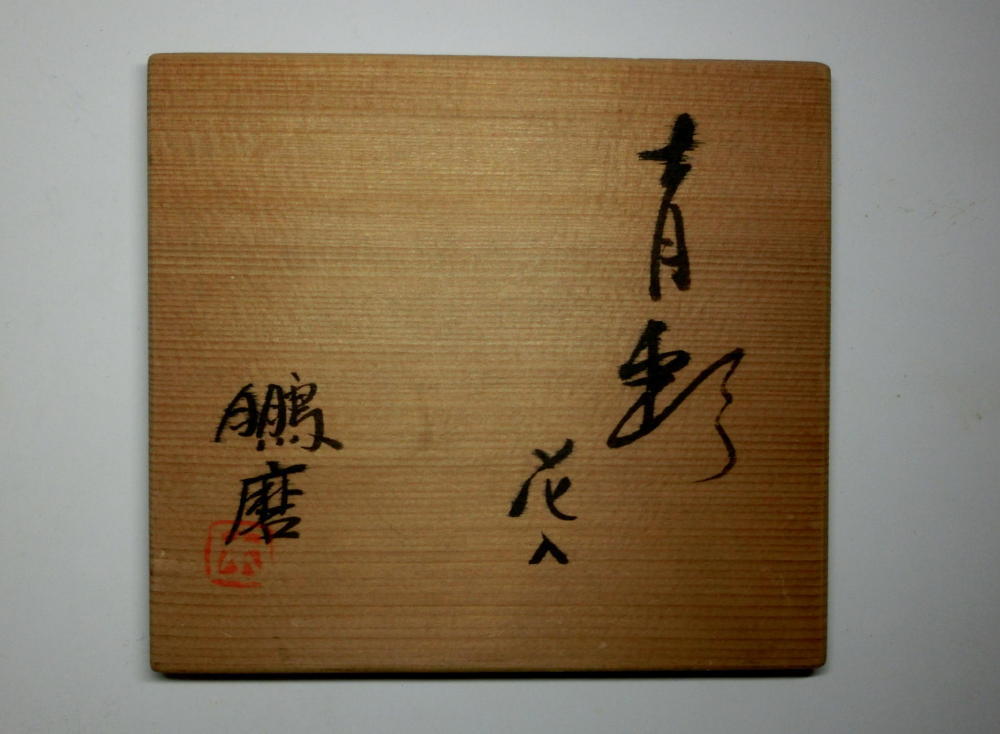 青
花入
鵬磨